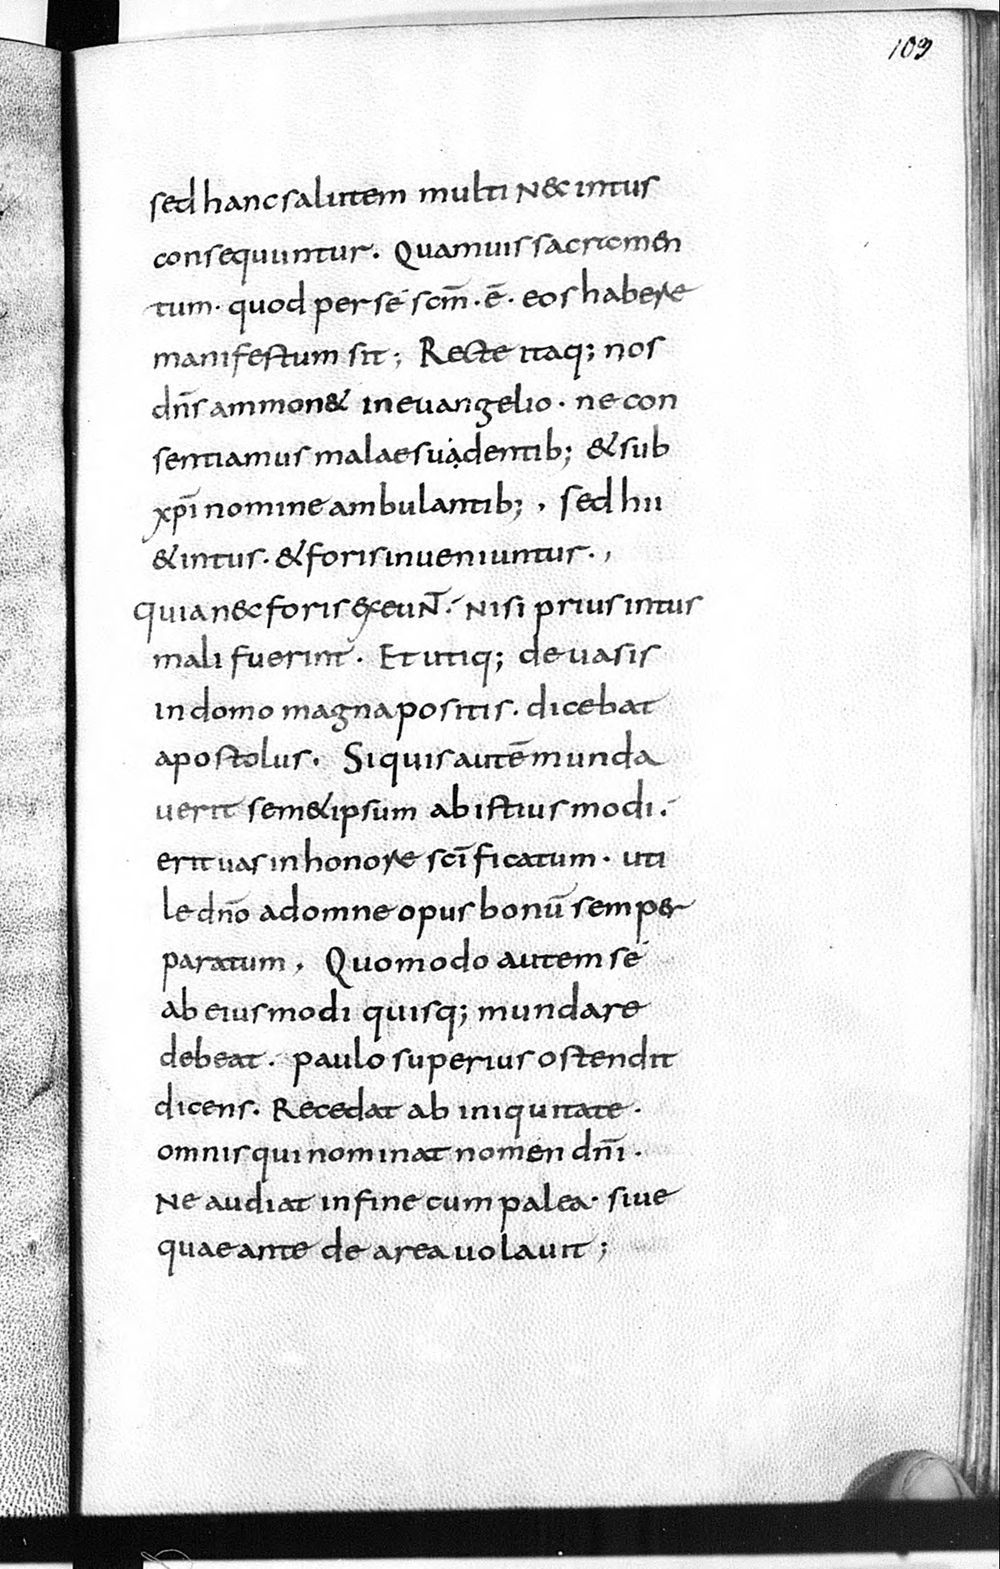 109
sed hanc salutem multi N&c intus
consequuntur. Quamuis sacramen
tum. quod per sé scm̄. ē. eos habere
manifestum sit; Recte itaq; nos
dn̄s ammon& in euangelio. ne con
sentiamus male suạdentib; & sub
xp̄i nomine ambulantib;, sed hii
& intus. & foris inueniuntur.,
quia n&c foris &ceuNT̄. Nisi prius intus
mali fuerint. Et utiq; de uasis
in domo magna positis. dicebat
apostolus. Si quis autē munda
uerit sem&ipsum ab istius modi.
erit uas in honore scī ficatum. uti
le dn̄o ad omne opus bonū semper
paratum, Quomodo autem sé
ab eiusmodi quisq; mundare
debeat. paulo superius ostendit
dicens. Recedat ab iniquitate.
omnis qui nominat nomen dn̄i.
Ne audiat in fine cum palea. siue
quae ante de area uolauit;